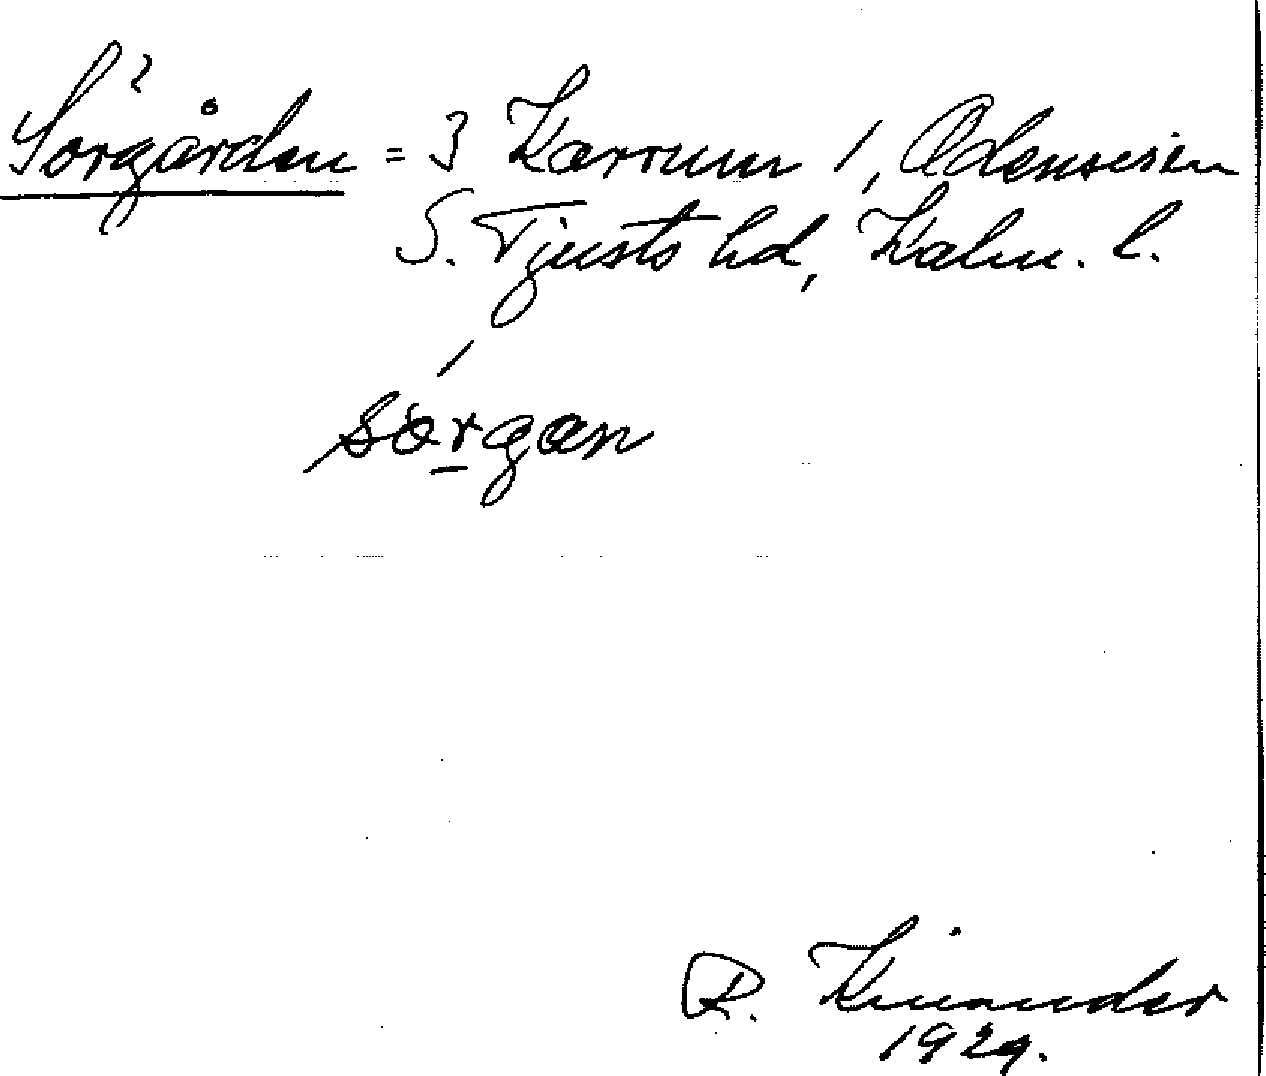 Sörgården = 3 Kärrum 1, Odensvien
S. Tjusts hd, Kalm. l.
sörgan
R. Kinander
1929.